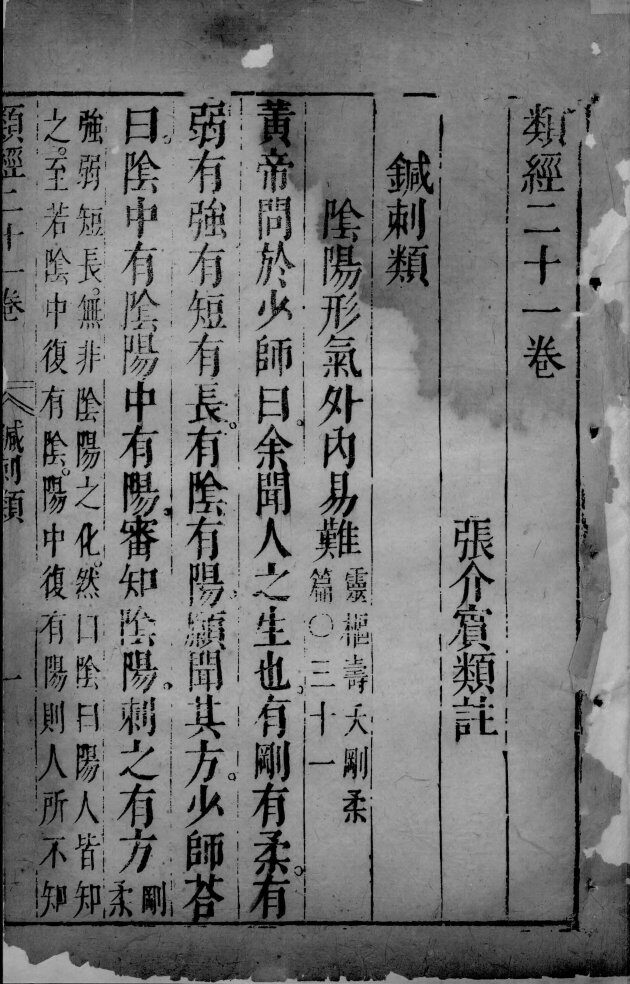 類經二十一卷
張介賓類註
鍼刺類
陰陽形氣外內易難
靈樞壽夭剛柔
篇〇三十一
黃帝問於少師曰。余聞人之生也。有剛有柔。有
弱有強有短有長。有陰有陽。願聞其方。少師荅
曰。陰中有陰陽中有陽。審知陰陽。刺之有方
剛
柔
強弱短長。無非陰陽之化。然曰陰曰陽人皆知
之。至若陰中復有陰。陽中復有陽則人所不知
類經二十一卷 鍼刺類 一